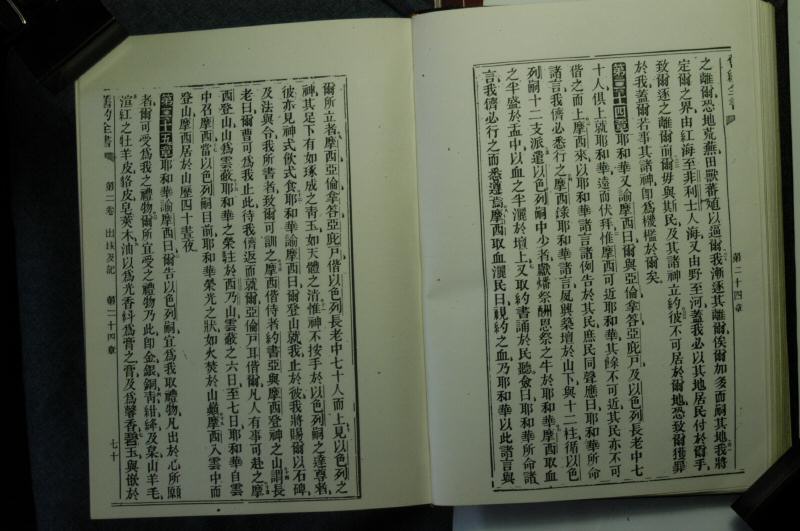 第二十四章
之離爾恐地荒蕪田獸蕃殖以逼爾我漸逐其離爾俟爾加多而嗣其地我將
定爾之界由紅海至非利士人海又由野至河蓋我必以其地居民付於爾手
致爾逐之離爾前爾毋與斯民及其諸神立約彼不可居於爾地恐致爾獲罪
於我蓋爾若事其諸神卽爲機檻於爾矣
第二十四章耶和華又諭摩西曰爾與亞倫拿答亞庇戶及以色列長老中七
十人俱上就耶和華遠而伏拜惟摩西可近耶和華其餘不可近其民亦不可
偕之而上摩西來以耶和華諸言諸例告於其民庶民同聲應曰耶和華所命
諸言我儕必悉行之摩西錄耶和華諸言夙興築壇於山下與十二柱循以色
列嗣十二支派遣以色列嗣中少者獻燔祭酬恩祭之牛於耶和華摩西取血
之半盛於盂中以血之半灑於壇上又取約書誦於民聽僉曰耶和華所命諸
言我儕必行之而悉遵焉摩西取血灑民曰視約之血乃耶和華以此諸言與
爾所立者摩西亞倫拿答亞庇戶偕以色列長老中七十人而上見以色列之
神其足下有如琢成之靑玉如天體之淸惟神不按手於以色列嗣之達尊者
彼亦見神式飮式食耶和華諭摩西曰爾登山就我止於彼我將賜爾以石碑
及法與令我所書者致爾可訓之摩西偕侍者約書亞與摩西登神之山謂長
老曰爾曹可爲我止此待我儕返而就爾亞倫戶耳偕爾凡人有事可赴之摩
西登山山爲雲蔽耶和華之榮駐於西乃山雲蔽之六日至七日耶和華自雲
中召摩西當以色列嗣目前耶和華榮光之狀如火焚於山巓摩西入雲中而
登山摩西居於山歷四十晝夜
第二十五章耶和華諭摩西曰爾告以色列嗣宜爲我取禮物凡出於心所願
者爾可受爲我之禮物爾所宜受之禮物乃此卽金銀銅靑紺絳及枲山羊毛
渲紅之牡羊皮貉皮皂莢木油以爲光香料爲膏之膏及爲馨香碧玉與嵌於
舊約全書 第二卷 出埃及記 第二十四章 七十